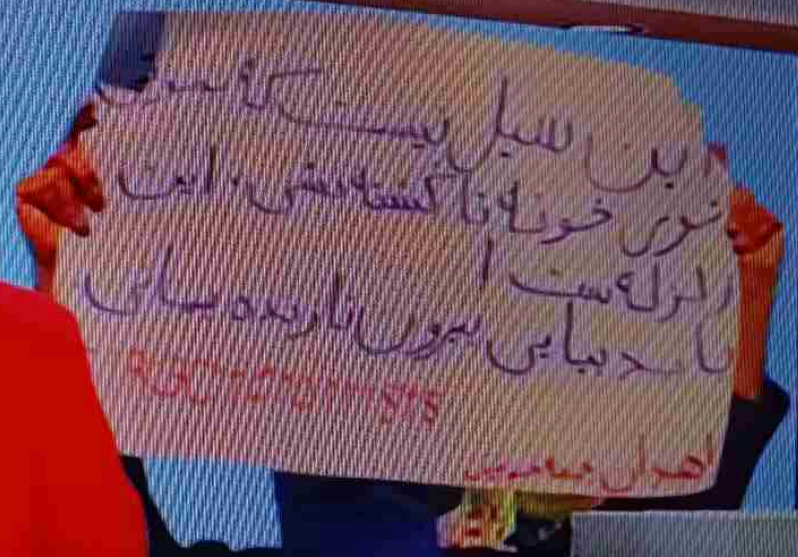 این سیل نیست که بمونی
توی خونه تا کشته نشی، این
زلزله ست!
باید بیایی بیرون تا زنده بمانی
اهواز